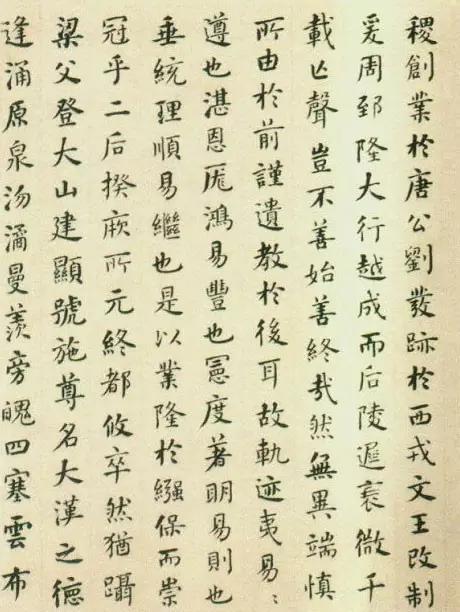 稷創業於唐公劉發跡於西戎文王改制
爰周郅隆大行越成而后陵遲衰微千
載亡聲豈不善始善終哉然無異端慎
所由於前謹遺教於後耳故軌迹夷易〻
遵也湛恩厖鴻易豐也憲度著明易則也
垂統理順易繼也是以業隆於繈保而崇
冠乎二后揆厥所元終都攸卒然猶躡
梁父登大山建顯號施尊名大漢之德
逢涌原泉沕潏曼羨旁魄四塞雲布